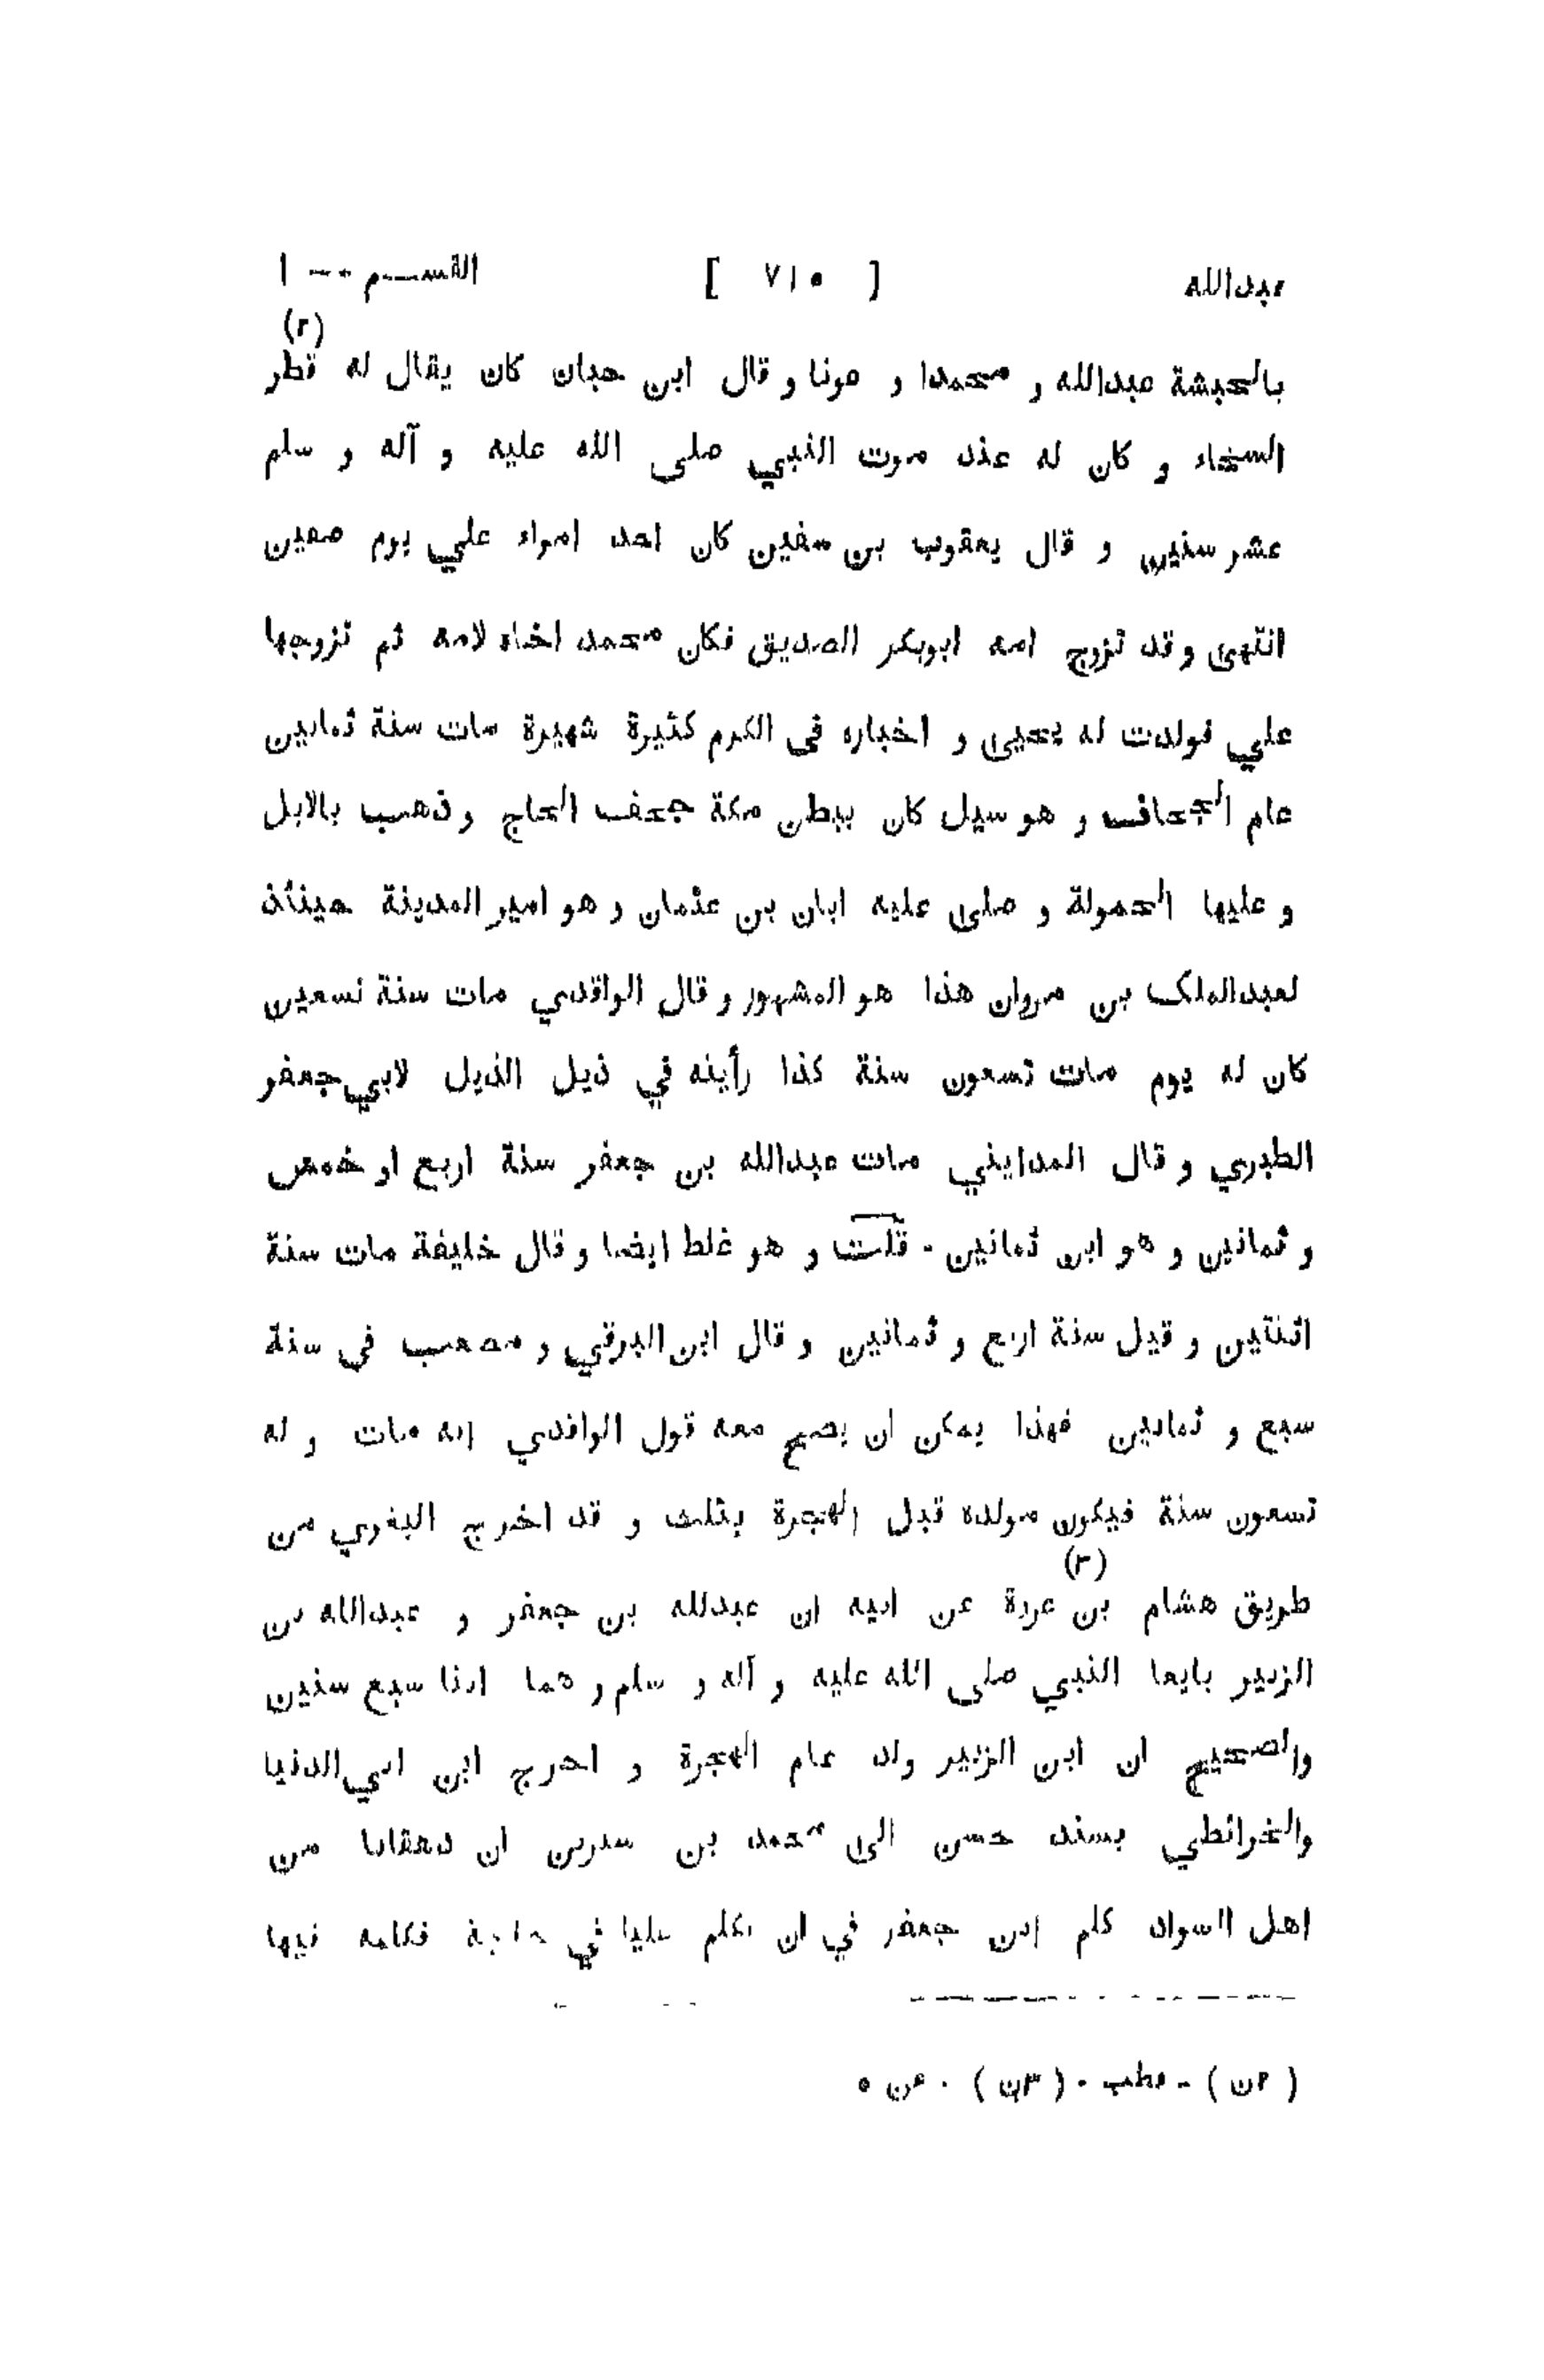 عبدالله [ ٧١٥ ] القســم -- ١
(٢)
بالحبشة عبدالله و محمدا و عونا و قال ابن حبان كان يقال له قطر
السخاء و كان له عند موت النبي صلى الله عليه و آله و سلم
عشر سنين و قال يعقوب بن سفين كان احد امراء علي يوم صفين
انتهى و قد تزوج امه ابوبكر الصديق فكان محمد اخاه لامه ثم تزوجها
علي فولدت له يحيى و اخباره في الكرم كثيرة شهيرة مات سنة ثمانين
عام الجحاف و هو سيل كان ببطن مكة جحف الحاج و ذهب بالابل
و عليها الحمولة و صلى عليه ابان بن عثمان و هو امير المدينة حينئذ
لعبدالملك بن مروان هذا هو المشهور و قال الواقدي مات سنة تسعين
كان له يوم مات تسعون سنة كذا رأيته في ذيل الذيل لابي جعفر
الطبري و قال المدايني مات عبدالله بن جعفر سنة اربع او خمس
و ثمانين و هو ابن ثمانين - قلت و هو غلط ايضا و قال خليفة مات سنة
اثنتين و قيل سنة اربع و ثمانين و قال ابن البرقي و مصعب في سنة
سبع و ثمانين فهذا يمكن ان يصح معه قول الواقدي انه مات و له
تسعون سنة فيكون مولده قبل الهجرة بثلث و قد اخرج البغوي من
(٣)
طريق هشام بن عروة عن ابيه ان عبدلله بن جعفر و عبدالله بن
الزبير بايعا النبي صلى الله عليه و آله و سلم و هما ابنا سبع سنين
والصحيح ان ابن الزبير ولد عام الهجرة و اخرج ابن ابي الدنيا
والخرائطي بسند حسن الى محمد بن سيرين ان دهقانا من
اهل السواد كلم ابن جعفر في ان يكلم عليا في حاجة فكلمه فيها
( ٢ن ) - قطب - ( ٣ن ) - عن ٥